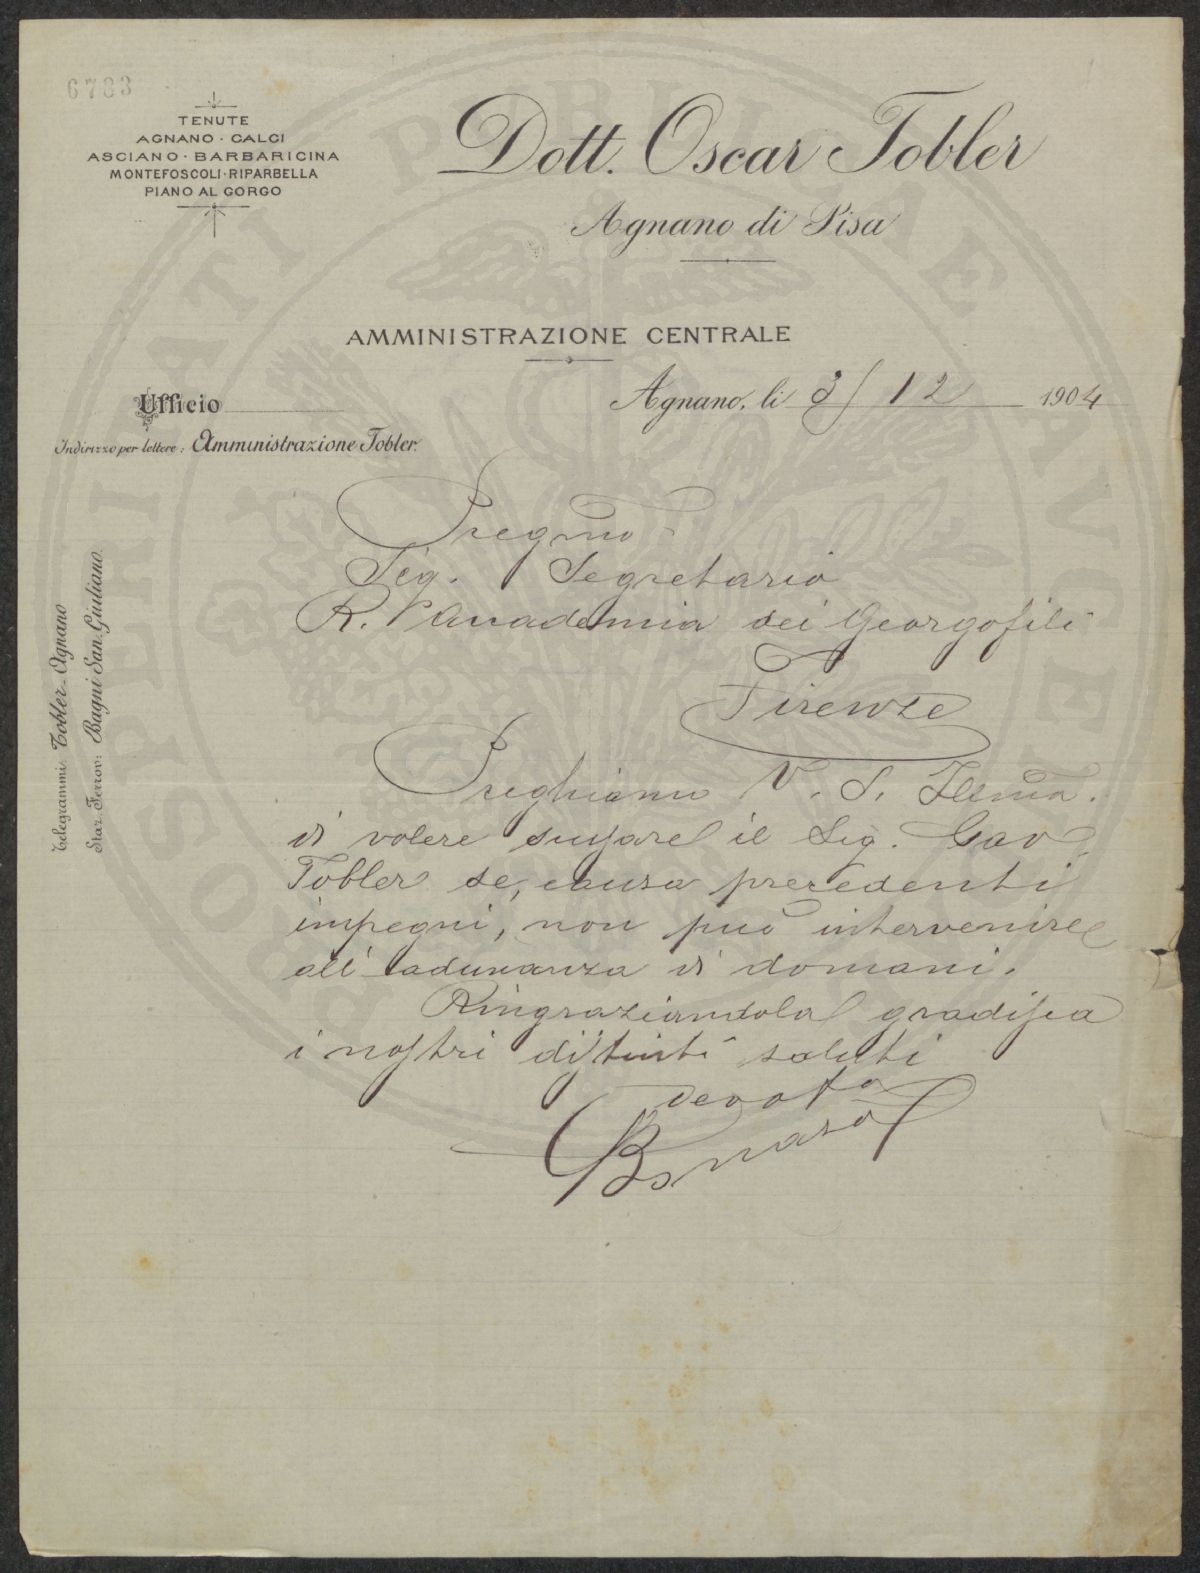 6783
TENUTE
AGNANO · CALCI
ASCIANO · BARBARICINA
MONTEFOSCOLI · RIPARBELLA
PIANO AL GORGO
Dott. Oscar Tobler
Agnano di Pisa
AMMINISTRAZIONE CENTRALE
Ufficio
Agnano, li 3/12 1904
Indirizzo per lettere: Amministrazione Tobler.
Telegrammi: Tobler-Agnano
Staz. Ferrov: Bagni San Giuliano
Pregmo
Sig. Segretario
R. Accademia dei Georgofili
Firenze
Preghiamo V. S. Illma.
di volere scusare il Sig. Cav.
Tobler se, causa precedenti
impegni, non può intervenire
all'adunanza di domani.
Ringraziandola gradisca
i nostri distinti saluti
PROSPERITATI PUBLICAE AUGENDAE